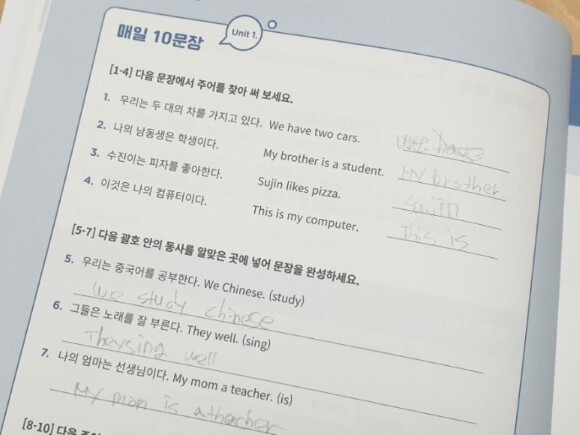 매일 10문장
Unit 1.
[1-4] 다음 문장에서 주어를 찾아 써 보세요.
1. 우리는 두 대의 차를 가지고 있다. We have two cars. wee have
2. 나의 남동생은 학생이다. My brother is a student. My brother
3. 수진이는 피자를 좋아한다. Sujin likes pizza. Sujin
4. 이것은 나의 컴퓨터이다. This is my computer. This is
[5-7] 다음 괄호 안의 동사를 알맞은 곳에 넣어 문장을 완성하세요.
5. 우리는 중국어를 공부한다. We Chinese. (study)
we study chinese
6. 그들은 노래를 잘 부른다. They well. (sing)
They sing well
7. 나의 엄마는 선생님이다. My mom a teacher. (is)
My mom is a
[8-10] 다음